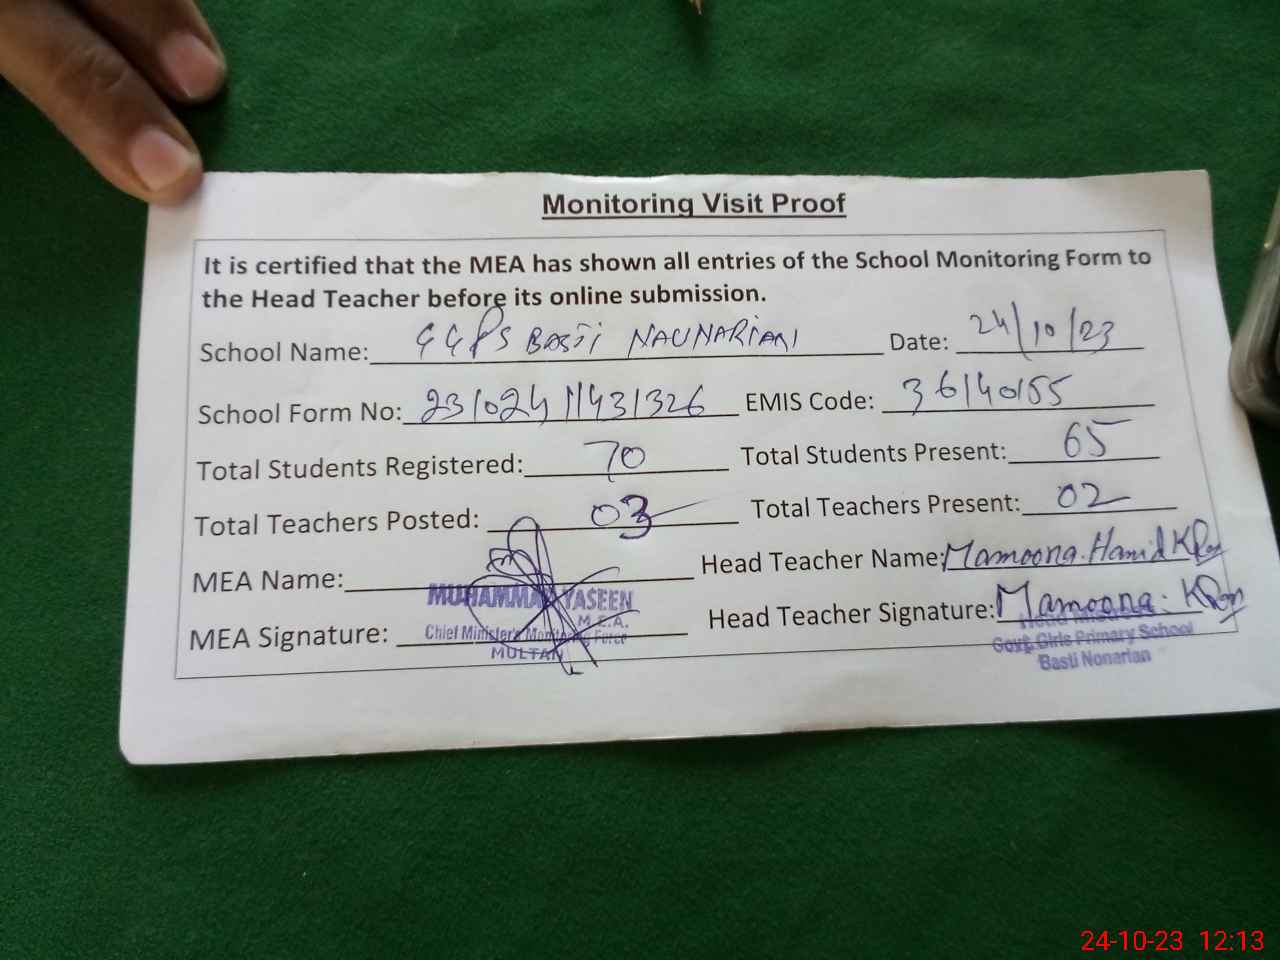 Monitoring Visit Proof
It is certified that the MEA has shown all entries of the School Monitoring Form to
the Head Teacher before its online submission.
School Name: GGPS BASTI NAUNARIAN Date: 24/10/23
School Form No: 23102411431326 EMIS Code: 36140155
Total Students Registered: 70 Total Students Present: 65
Total Teachers Posted: 03 Total Teachers Present: 02
MEA Name: Head Teacher Name: Mamoona Hamid Khan
MUHAMMAD YASEEN
M.E.A.
MEA Signature: Head Teacher Signature: Mamoona Khan
Chief Minister's Monitoring Force
MULTAN
Head Mistress
Govt. Girls Primary School
Basti Nonarian
24-10-23 12:13